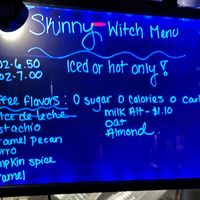 Skinny Witch Menu
02-6.50
02-7.00
Iced or hot only!
ffee flavors: 0 sugar 0 calories 0 car
lce de leche
stachio
ramel pecan
urro
mpkin spice
ramel
milk Alt - $1.10
oat
Almond